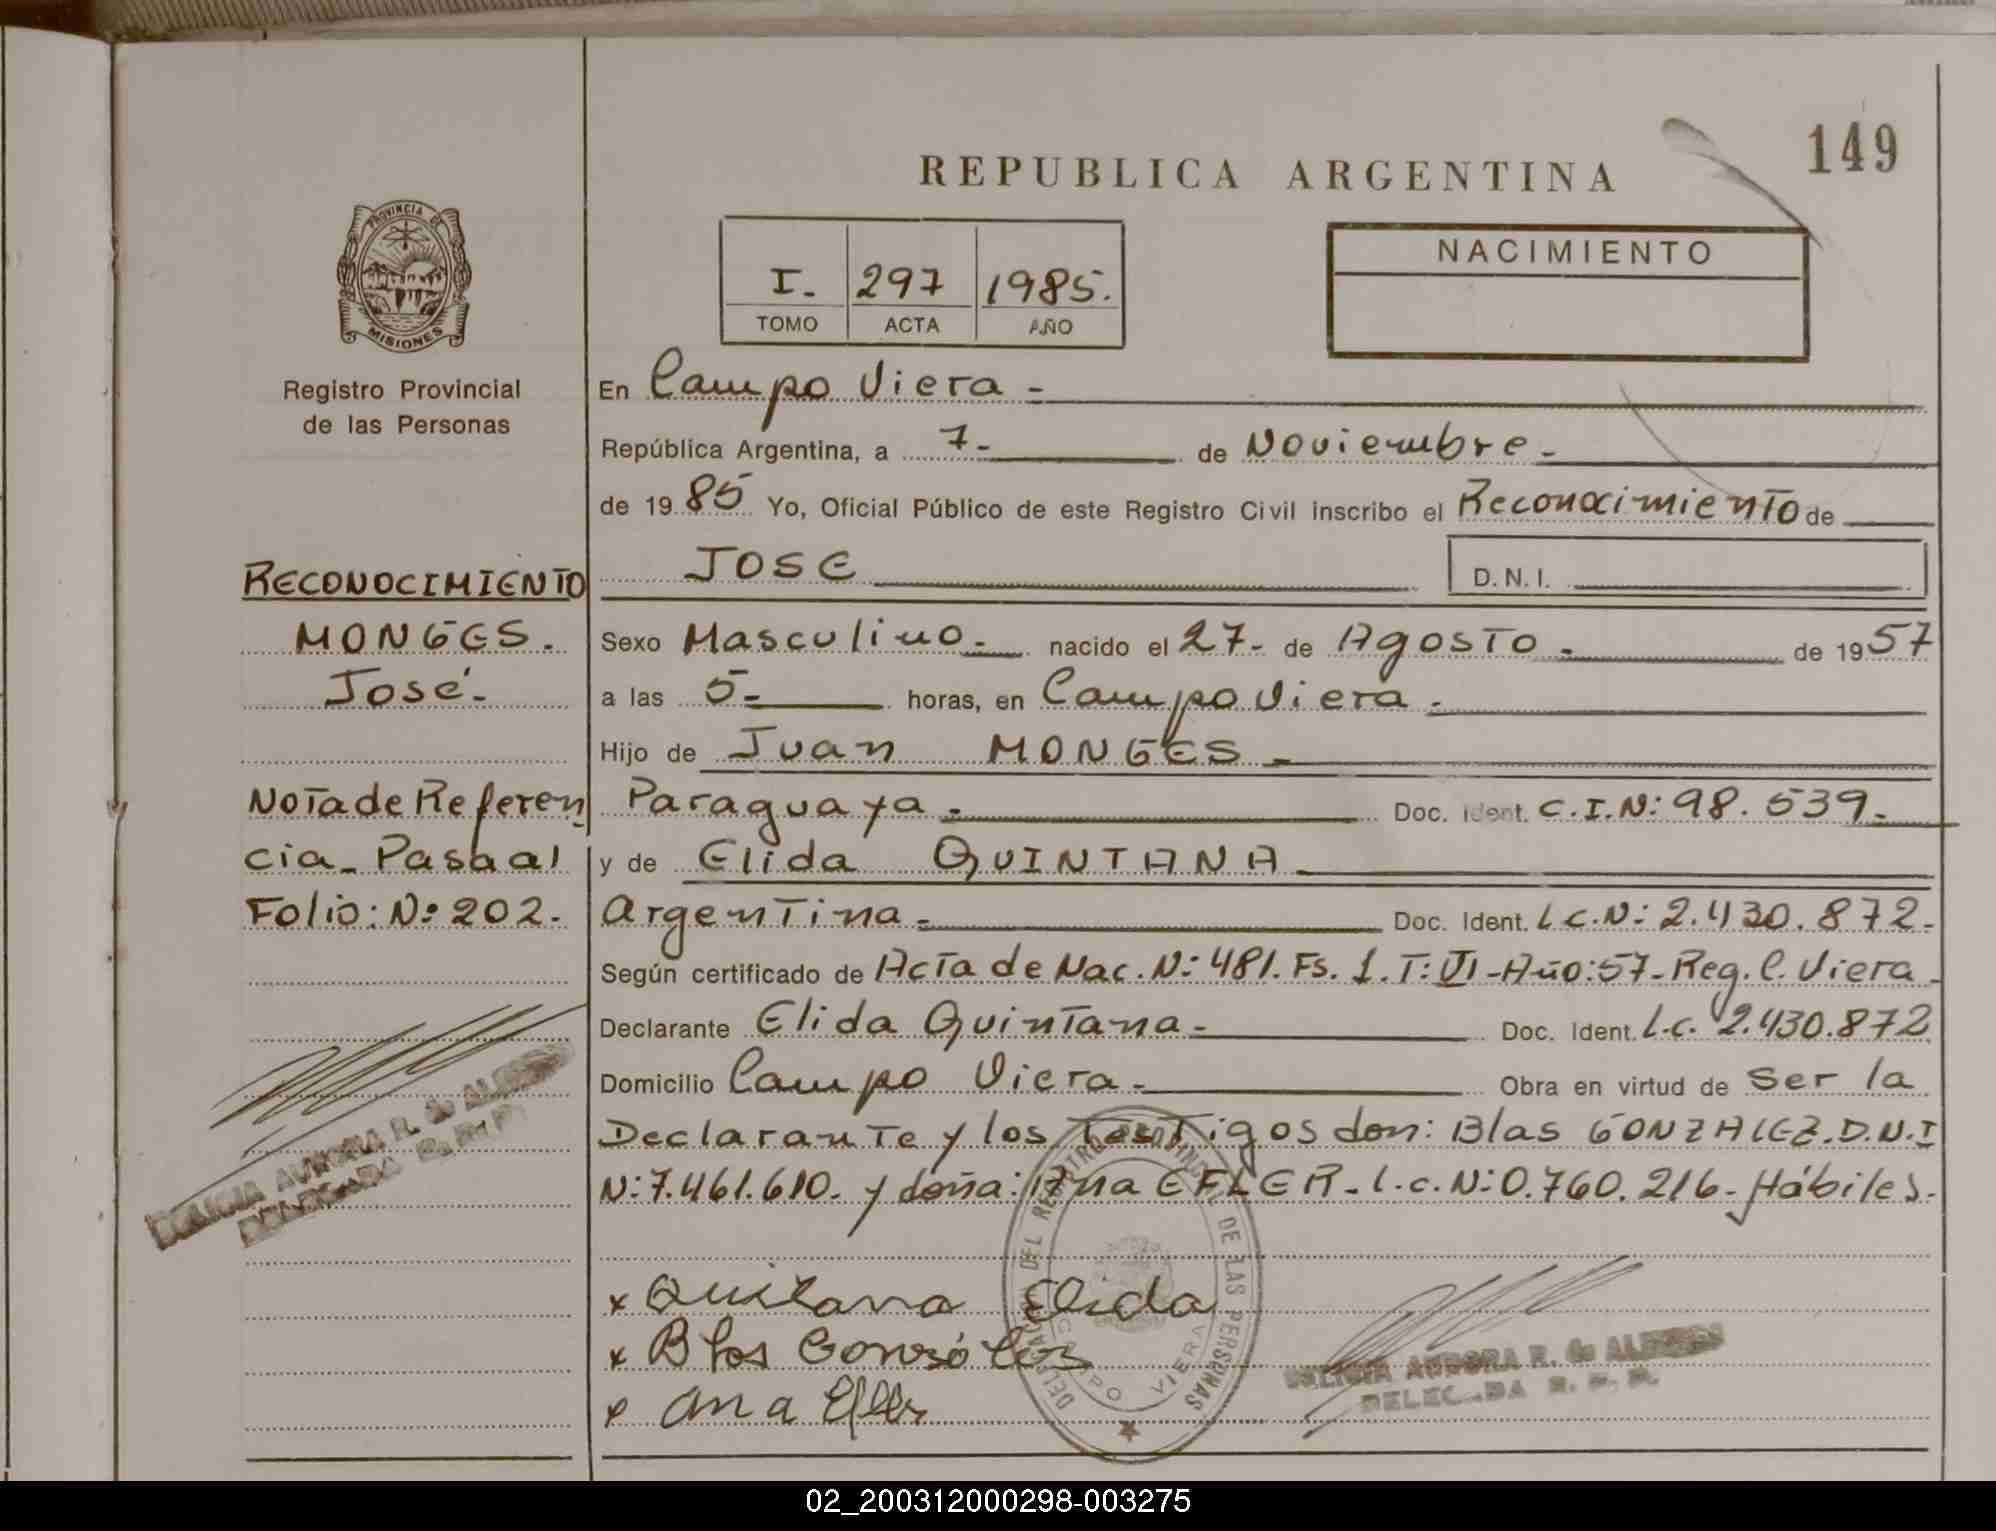 149
REPUBLICA ARGENTINA
PROVINCIA DE
MISIONES
Registro Provincial
de las Personas
I. 297 1985.
TOMO ACTA AÑO
NACIMIENTO
En Campo Viera -
República Argentina, a 7- de Noviembre.
de 1985 Yo, Oficial Público de este Registro Civil inscribo el Reconocimiento de
JOSE D.N.I.
RECONOCIMIENTO
MONGES.
José-
Nota de Referen
cia_ Pasa al
Folio: Nº 202.
Sexo Masculino- nacido el 27- de Agosto - de 1957
a las 5- horas, en Campo Viera -
Hijo de Juan MONGES -
Paraguaya - Doc. Ident. C.I.N: 98.539-
y de Elida QUINTANA -
Argentina - Doc. Ident. L.C.N: 2.430.872-
Según certificado de Acta de Nac. N: 481. Fs. 1. T: VI-Año: 57- Reg. C. Viera -
Declarante Elida Quintana - Doc. Ident. L.C. 2.430.872
Domicilio Campo Viera - Obra en virtud de Ser la
Declarante y los Testigos don: Blas GONZALEZ. D.N.I
N: 7.461.610. y doña: Ana EFLER - L.C.N: 0.760.216- Hábiles.
x Quitana Elida
x Blas Gonzáles
x Ana Efler
DEL REGISTRO PROVINCIAL DE LAS PERSONAS
CAMPO VIERA
AURORA R. de
DELEGADA R. P. P.
AURORA R. de
DELEGADA R. P. P.
02_200312000298-003275